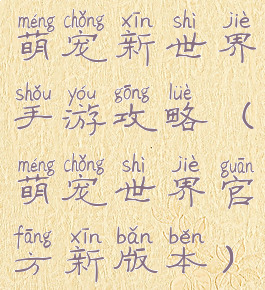 méng chǒng xīn shì jiè
萌宠新世界
shǒu yóu gōng lüè
手游攻略（
méng chǒng shì jiè guān
萌宠世界官
fāng xīn bǎn běn
方新版本）